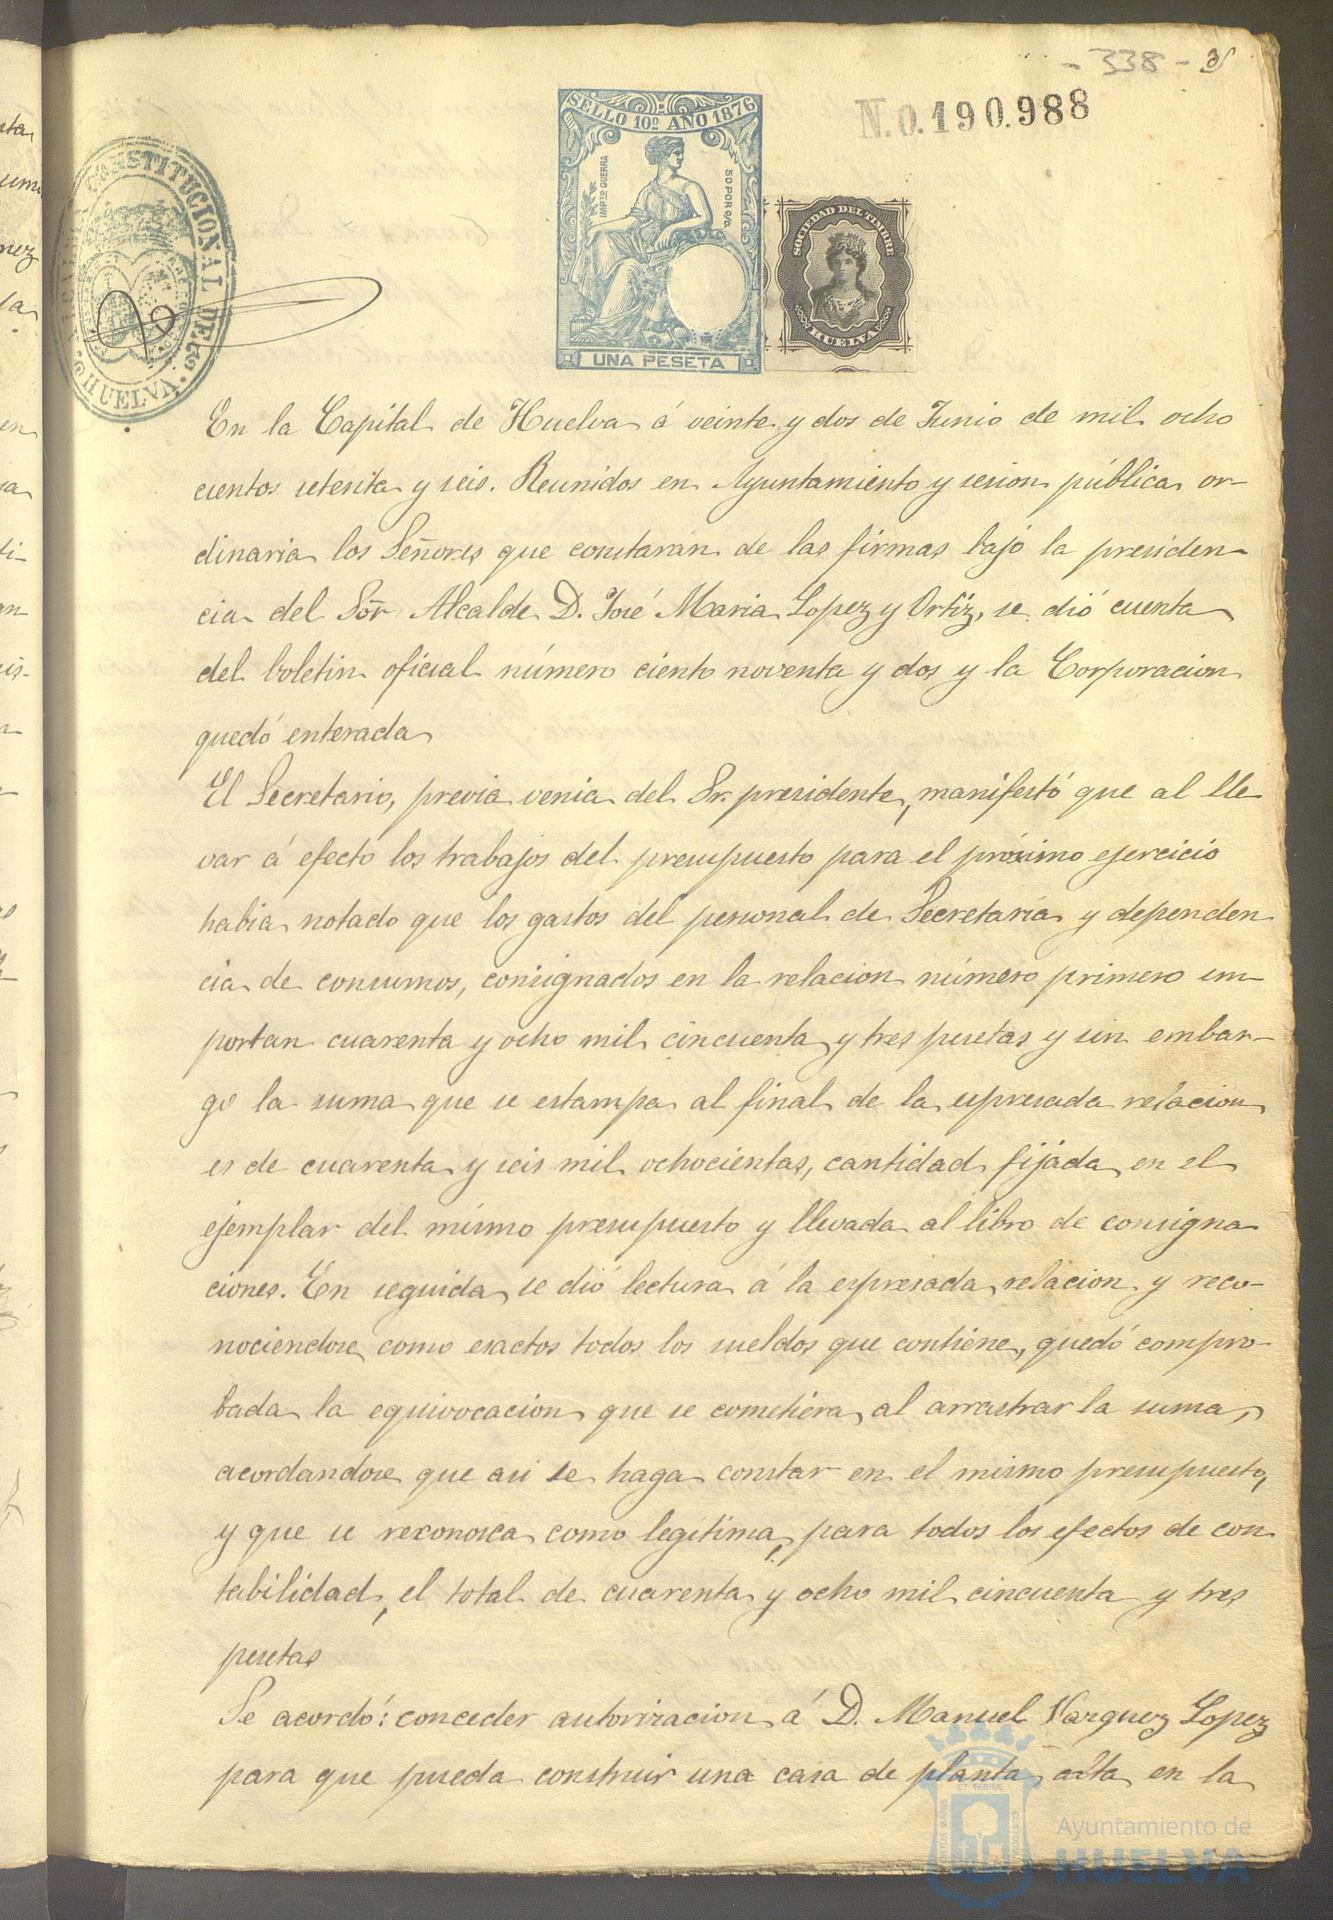 - 338 -
N.0.190.988
SELLO 10º AÑO 1876
IMPTO GUERRA
50 POR 0/0
UNA PESETA
SOCIEDAD DEL TIMBRE
HUELVA
CONSTITUCIONAL DE
HUELVA
En la Capital de Huelva á veinte y dos de Junio de mil ocho
cientos setenta y seis. Reunidos en Ayuntamiento y sesion pública or-
dinaria los Señores que constarán de las firmas bajo la presiden-
cia del Sõr Alcalde D. José Maria Lopez y Ortiz, se dió cuenta
del boletin oficial número ciento noventa y dos y la Corporacion
quedó enterada
El Secretario, previa venia del Sr. presidente, manifestó que al lle
var á efecto los trabajos del presupuesto para el próximo ejercicio
habia notado que los gastos del personal de Secretaria y dependen
cia de consumos, consignados en la relacion número primero im-
portan cuarenta y ocho mil cincuenta y tres pesetas y sin embar-
go la suma que se estampa al final de la espresada relacion
es de cuarenta y seis mil ochocientas, cantidad fijada en el
ejemplar del mismo presupuesto y llevada al libro de consigna
ciones. En seguida se dió lectura á la espresada relacion y reco-
nociendose como esactos todos los sueldos que contiene, quedó compro-
bada la equivocacion que se cometiera al arrastrar la suma,
acordandose que asi se haga constar en el mismo presupuesto,
y que se reconosca como legitima, para todos los efectos de con
tabilidad, el total de cuarenta y ocho mil cincuenta y tres
pesetas
Se acordó: conceder autorizacion á D. Manuel Vazquez Lopez
para que pueda construir una casa de planta alta en la
Ayuntamiento de
HUELVA